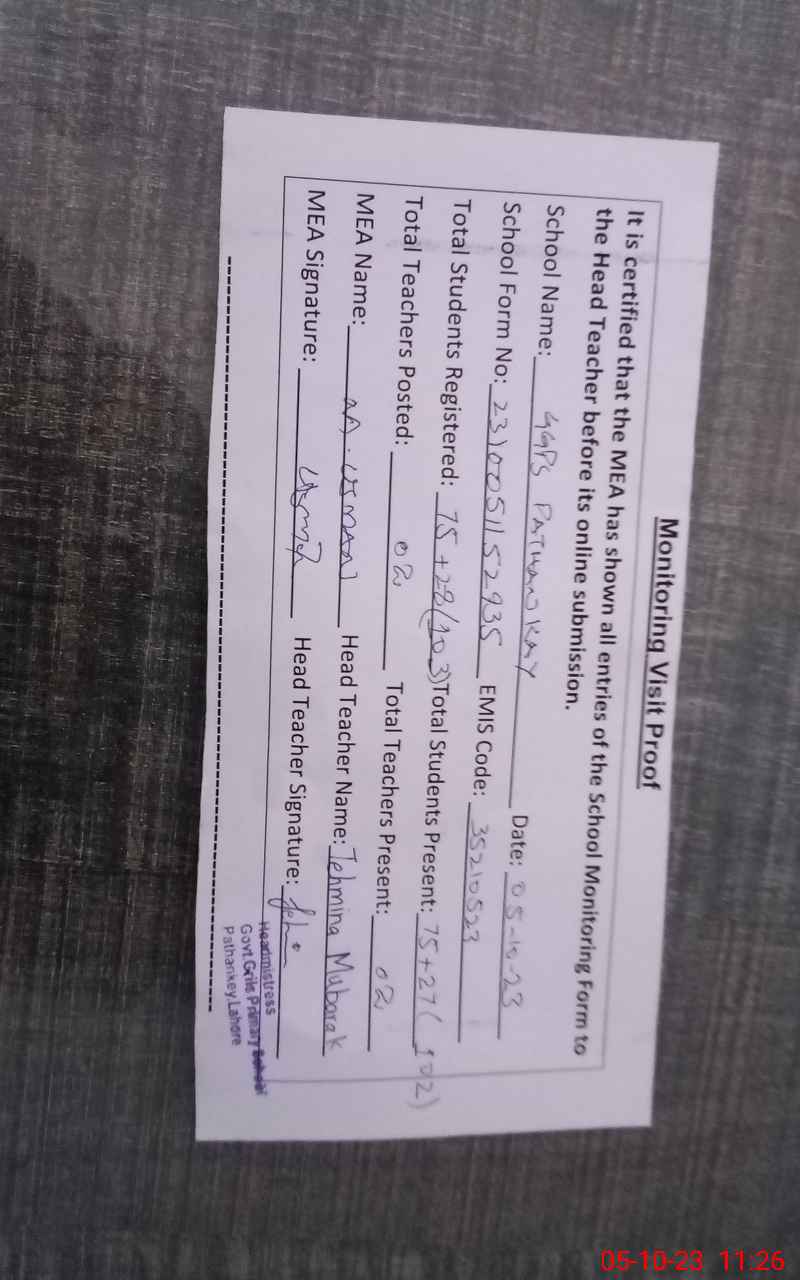 Monitoring Visit Proof
It is certified that the MEA has shown all entries of the School Monitoring Form to
the Head Teacher before its online submission.
School Name: GGPS PATHANKAY Date: 05-10-23
School Form No: 2310051152935 EMIS Code: 35210523
Total Students Registered: 75+28(103) Total Students Present: 75+27(102)
Total Teachers Posted: 02 Total Teachers Present: 02
MEA Name: M. USMAN Head Teacher Name: Tehmina Mubarak
MEA Signature: Head Teacher Signature:
Headmistress
Govt.Grils Primary School
Pathankey Lahore
05-10-23 11:26